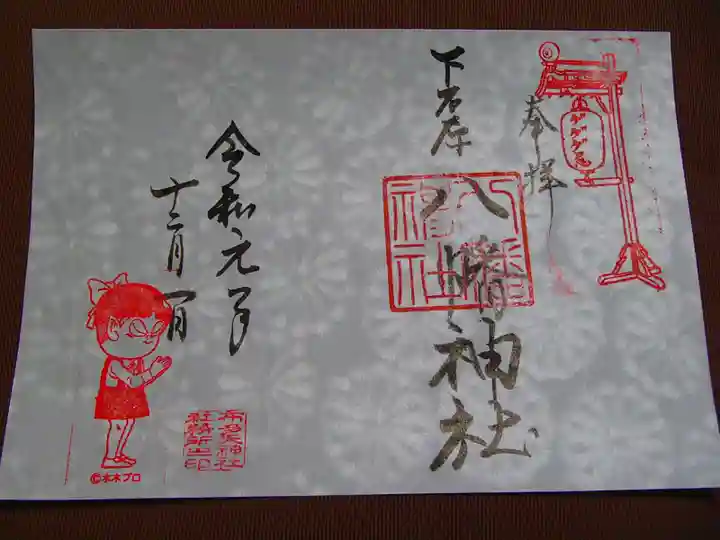 奉拝
下石原
八幡神社
八幡神社
ゲゲゲ忌
令和元年
十二月一日
布多天神社
社務所之印
©水木プロ